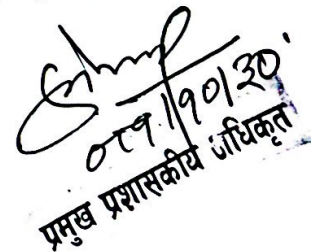 ०८१|१०|२०
प्रमुख प्रशासकीय अधिकृत